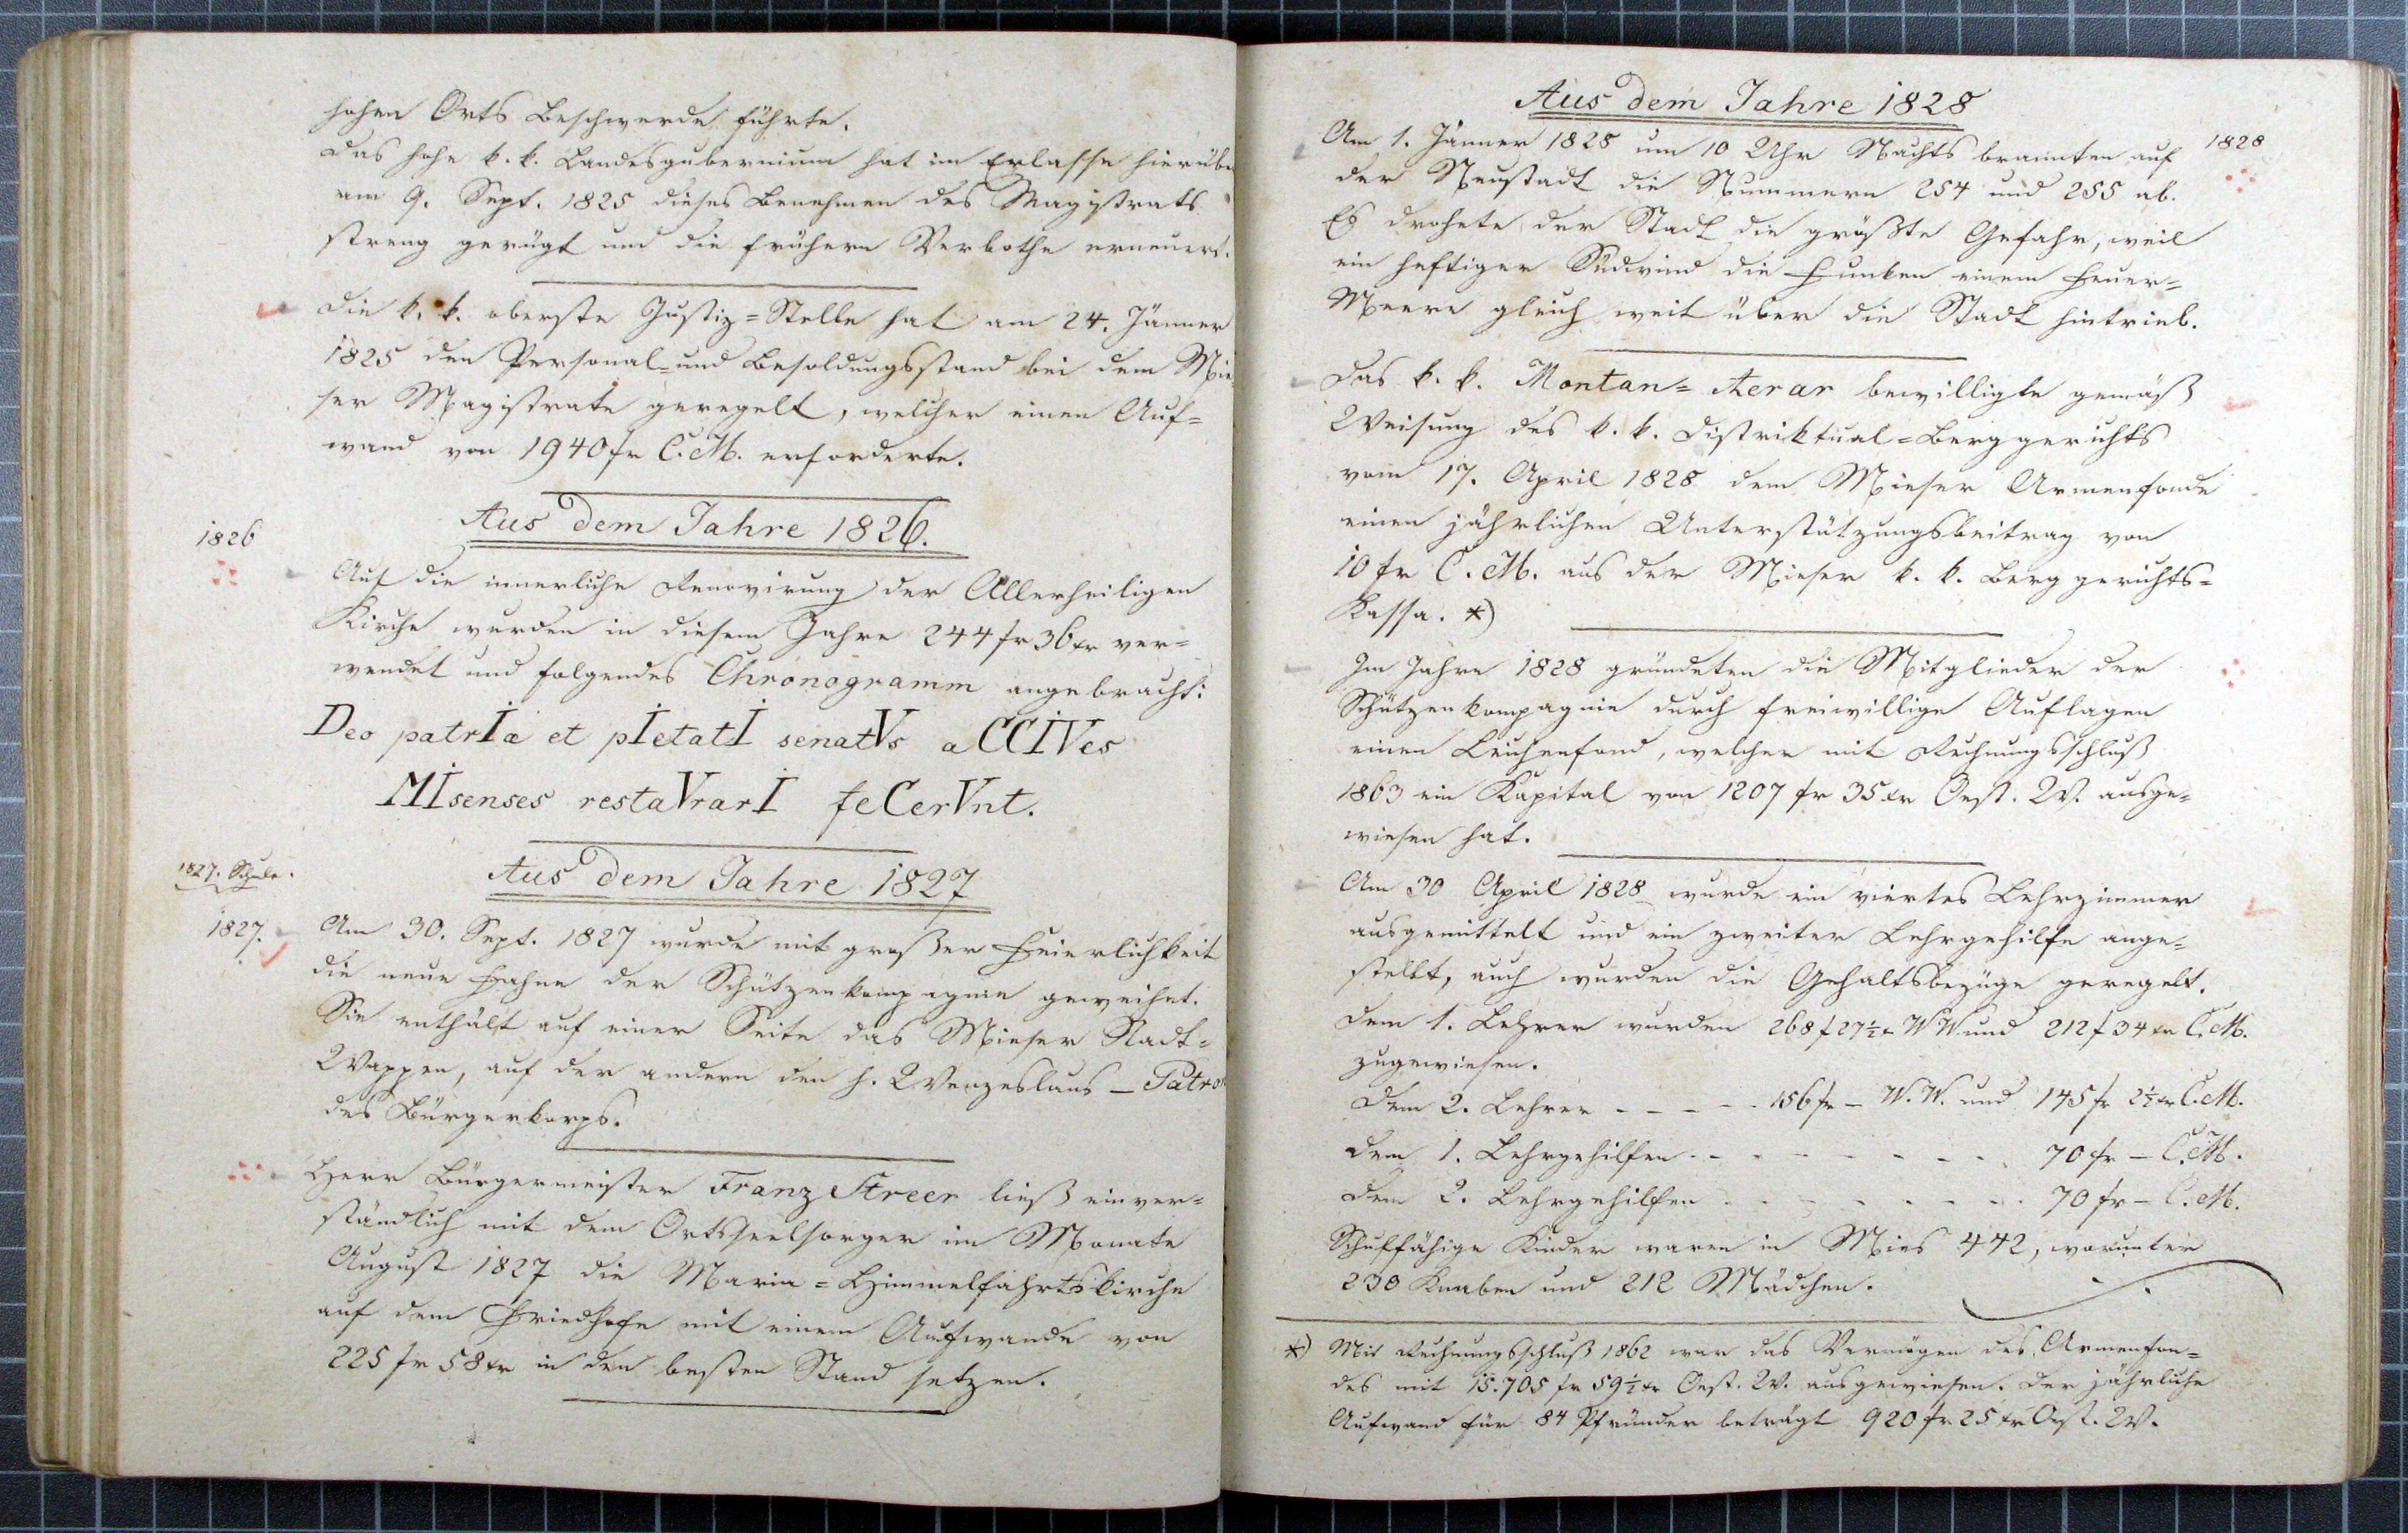 hohen Orts Beschwerde führte.
Das hohe k. k. Landesgubernium hat im Erlasse hierüber
am 9. Sept. 1825 dieses Benehmen des Magistrats
streng gerügt und die frühern Verbothe erneuert.
Die k. k. oberste Justiz=Stelle hat am 24. Jänner
1825 den Personal= und Besoldungsstand bei dem Mie
ser Magistrate geregelt, welcher einen Auf=
wand von 1940 fr C. M. erforderte.
Aus dem Jahre 1826.
1826
Auf die innerliche Renovirung der Allerheiligen
Kirche wurden in diesem Jahre 244 fr 36 xr ver=
wendet und folgendes Chronogramm angebracht:
Deo patrIæ et pIetatI senatVs aCCIVes
MIsenses restaVrarI feCerVnt.
Aus dem Jahre 1827
1827. Schule.
1827.
Am 30. Sept. 1827 wurde mit großer Feierlichkeit
die neue Fahne der Schützenkompagnie geweihet.
Sie enthält auf einer Seite das Mieser Stadt=
Wappen, auf der andern den h. Wenzeslaus – Patron
des Bürgerkorps.
Herr Bürgermeister Franz Streer ließ einver=
ständlich mit dem Ortsseelsorger im Monate
August 1827 die Maria=Himmelfahrtskirche
auf dem Friedhofe mit einem Aufwande von
225 fr 58 xr in den besten Stand setzen.
Aus dem Jahre 1828
1828
Am 1. Jänner 1828 um 10 Uhr Nachts brannten auf
der Neustadt die Nummern 254 und 255 ab.
Es drohete der Stadt die größte Gefahr, weil
ein heftiger Südwind die Funken einem Feuer=
Meere gleich weit über die Stadt hintrieb.
Das k. k. Montan=Aerar bewilligte gemäß
Weisung des k. k. Distriktual=Berggerichts
vom 17. April 1828 dem Mieser Armenfonde
einen jährlichen Unterstützungsbeitrag von
10 fr C. M. aus der Mieser k. k. Berggerichts=
Kassa. *)
Im Jahre 1828 gründeten die Mitglieder der
Schützenkompagnie durch freiwillige Auflagen
einen Leichenfond, welcher mit Rechnungsschluß
1863 ein Kapital von 1207 fr 35 xr Oest. W. ausge=
wiesen hat.
Am 30 April 1828 wurde ein viertes Lehrzimmer
ausgemittelt und ein zweiter Lehrgehilfe ange=
stellt, auch wurden die Gehaltsbezüge geregelt.
Dem 1. Lehrer wurden 268 f 27½ x W W und 212 f 34 xr C. M.
zugewiesen.
Dem 2. Lehrer – – – – – 156 fr – W. W. und 145 fr 2½ xr C. M.
Dem 1. Lehrgehilfen – – – – – – – – 70 fr – C. M.
Dem 2. Lehrgehilfen – – – – – – – – 70 fr – C. M.
Schulfähige Kinder waren in Mies 442, worunter
230 Knaben und 212 Mädchen.
*) Mit Rechnungsschluß 1862 war das Vermögen des Armenfon=
des mit 15.705 fr 59½ xr Oest. W. ausgewiesen. Der jährliche
Aufwand für 84 Pfründer beträgt 920 fr 25 xr Oest. W.